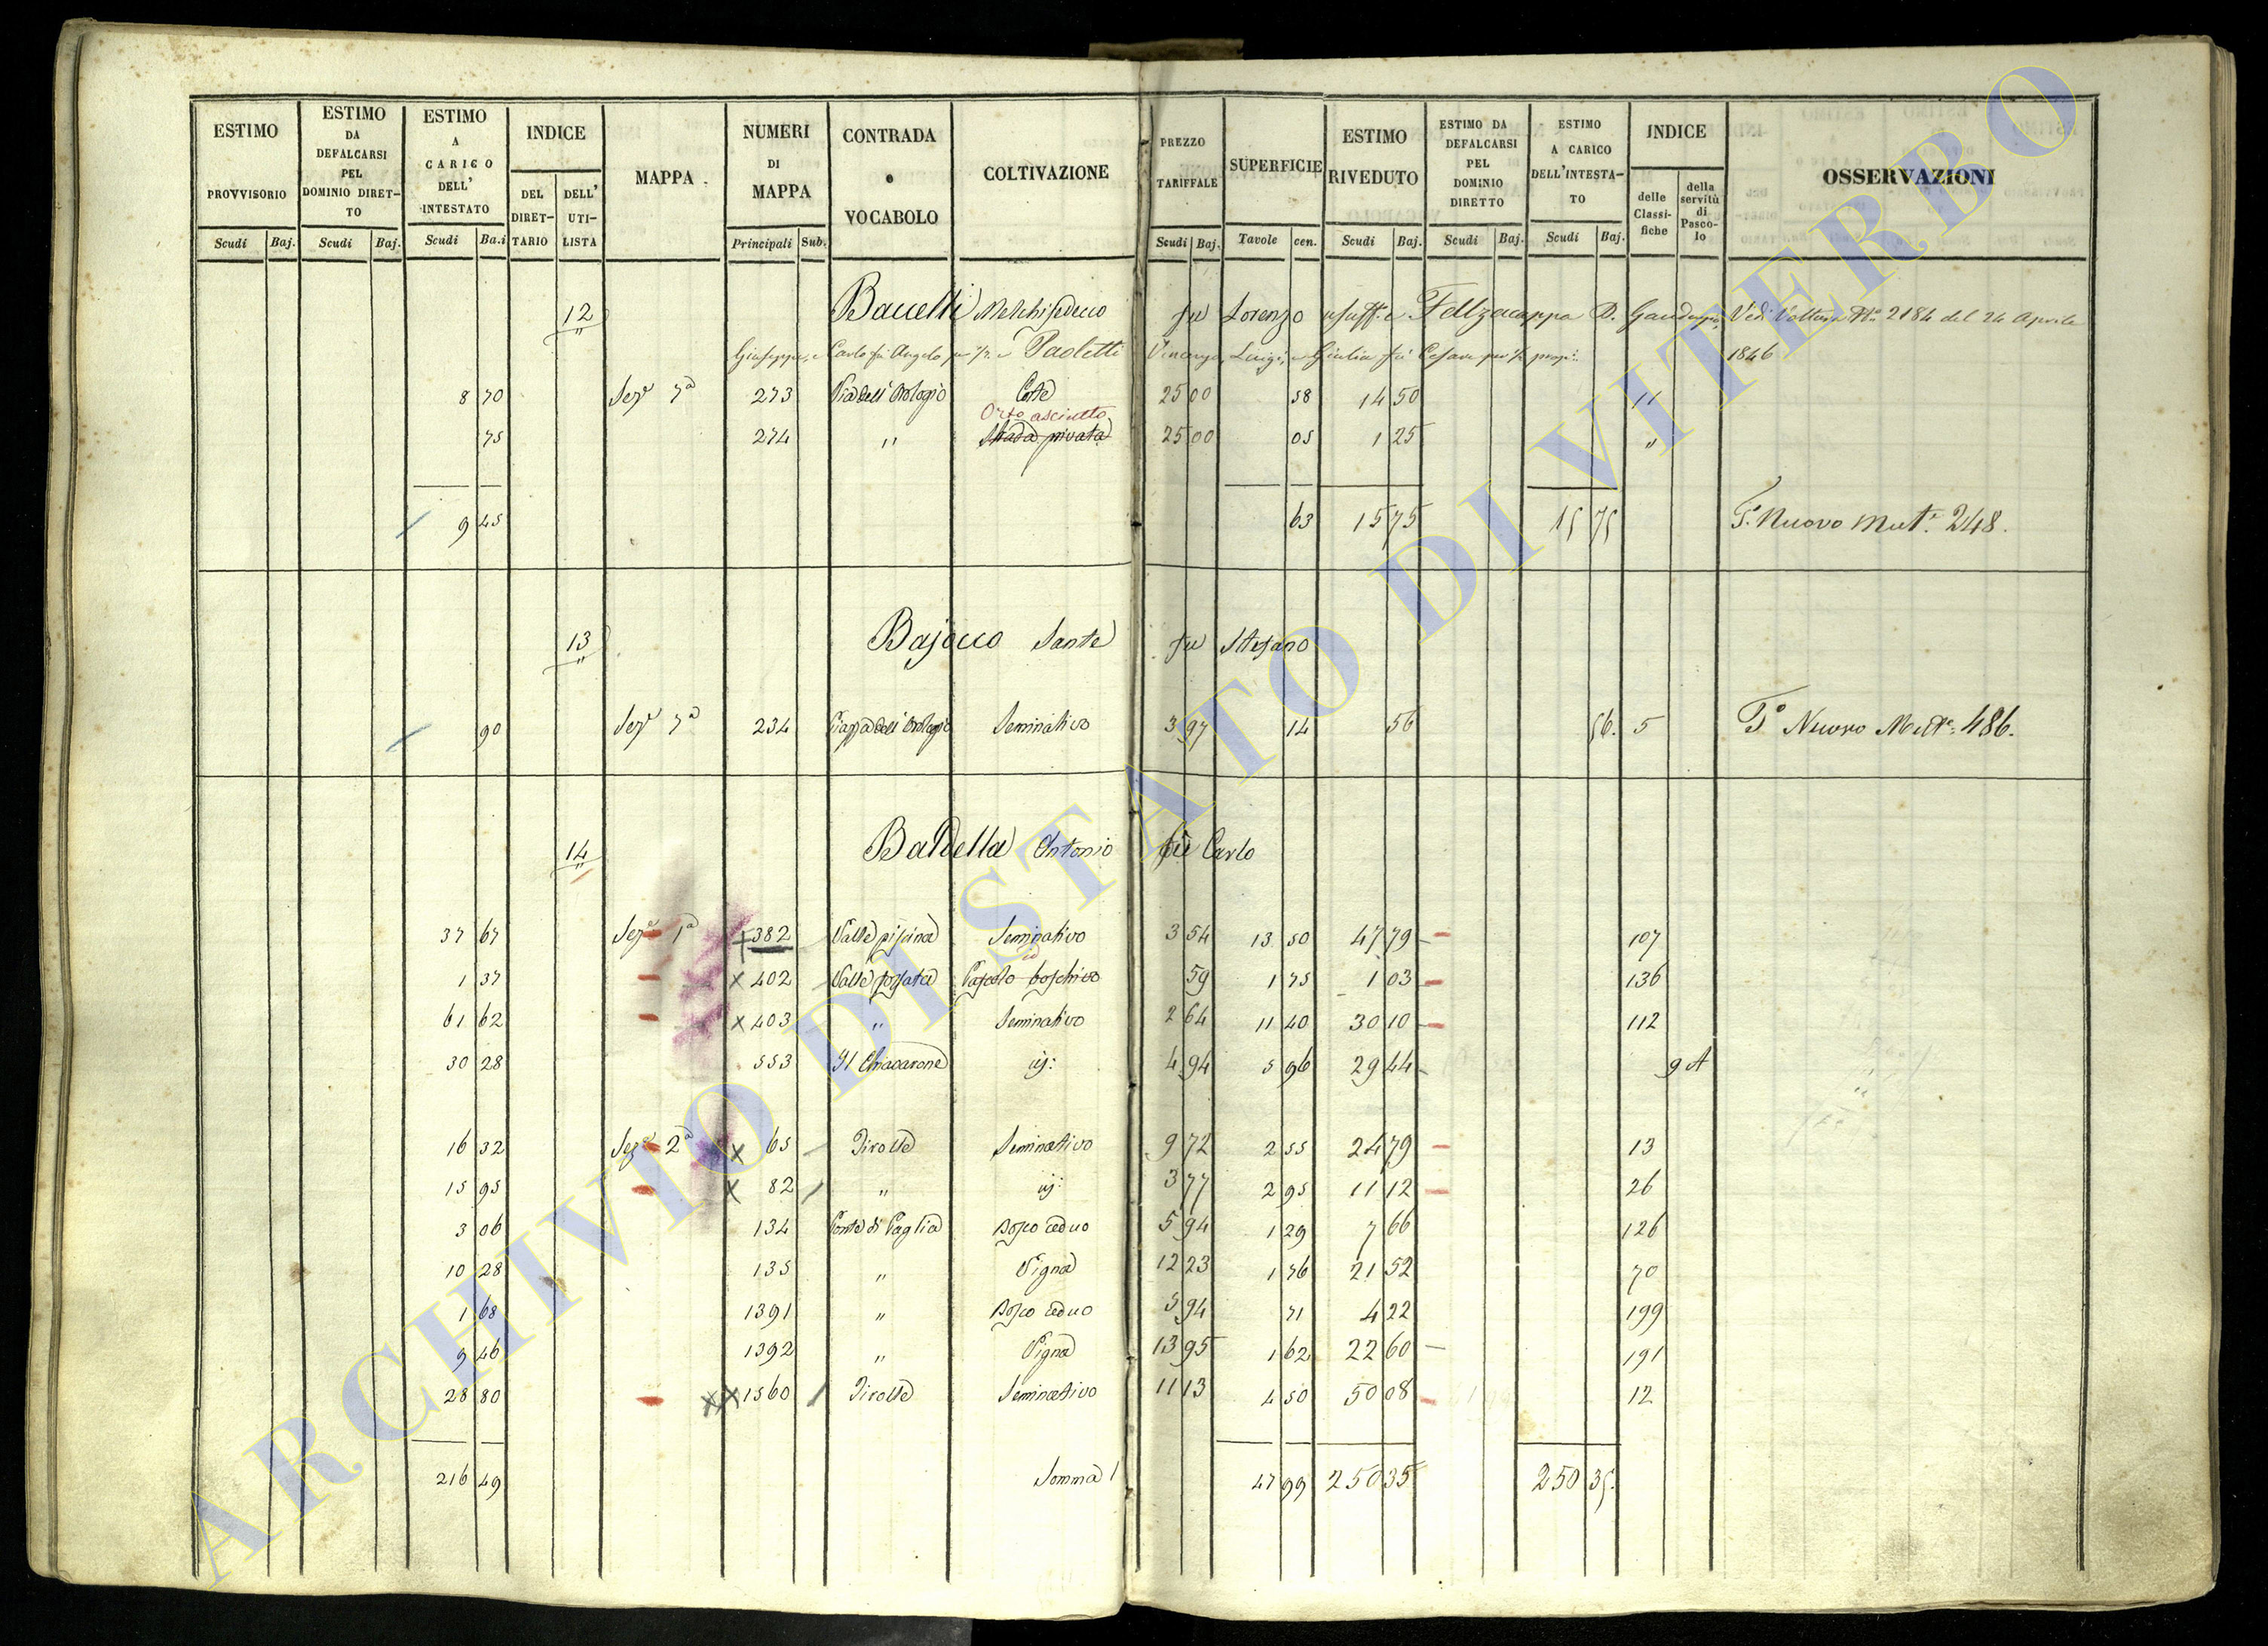 ESTIMO PROVVISORIO Scudi Baj.
ESTIMO DA DEFALCARSI PEL DOMINIO DIRETTO Scudi Baj.
ESTIMO A CARICO DELL' INTESTATO Scudi Ba.i
INDICE DEL DIRETTARIO DELL' UTILISTA
MAPPA
NUMERI DI MAPPA Principali Sub.
CONTRADA o VOCABOLO
COLTIVAZIONE
PREZZO TARIFFALE Scudi Baj.
SUPERFICIE Tavole cen.
ESTIMO RIVEDUTO Scudi Baj.
ESTIMO DA DEFALCARSI PEL DOMINIO DIRETTO Scudi Baj.
ESTIMO A CARICO DELL'INTESTATO Scudi Baj.
INDICE delle Classifiche della servitù di Pascolo
OSSERVAZIONI
12 Baccelli Melchisedecco fu Lorenzo usuff. e Felzacappa D. Vedi Voltura N.o 2184 del 24 Aprile
Giuseppe, e Carlo fu Angelo per 1/2 e Paoletti Vincenzo, Luigi, e Giulia fu Cesare per 1/2 propri: 1846
8 70 Sez.e 7a 273 Via dell' Orologio Corte 25 00 58 14 50 11
Orto asciutto
75 274 " Strada privata 25 00 05 1 25 "
9 45 63 15 75 15 75 T. Nuovo Mut.e 248.
13 Bajocco Sante fu Stefano
90 Sez.e 7a 234 Piazza dell' Orologio Seminativo 3 97 14 56 56. 5 T.o Nuovo Mutt.e 486.
14 Baldella Antonio fu Carlo
37 67 Sez.e 1a 382 Valle piscina Seminativo 3 54 13 50 47 79 107
1 37 402 Valle fossata Pascolo boschivo 59 1 75 1 03 136
61 62 403 " Seminativo 2 64 11 40 30 10 112
30 28 553 Il Chiacarone iij: 4 94 5 96 29 44 9 A
16 32 Sez.e 2a 65 Pirolle Seminativo 9 72 2 55 24 79 13
15 95 82 " iij: 3 77 2 95 11 12 26
3 06 134 Ponte di Paglia Bosco ceduo 5 94 1 29 7 66 126
10 28 135 " Vigna 12 23 1 76 21 52 70
1 68 1391 " Bosco ceduo 5 94 71 4 22 199
9 46 1392 " Vigna 13 95 1 62 22 60 191
28 80 1560 Pirolle Seminativo 11 13 4 50 50 08 12
216 49 Somma 47 99 250 35 250 35.
ARCHIVIO DI STATO DI VITERBO